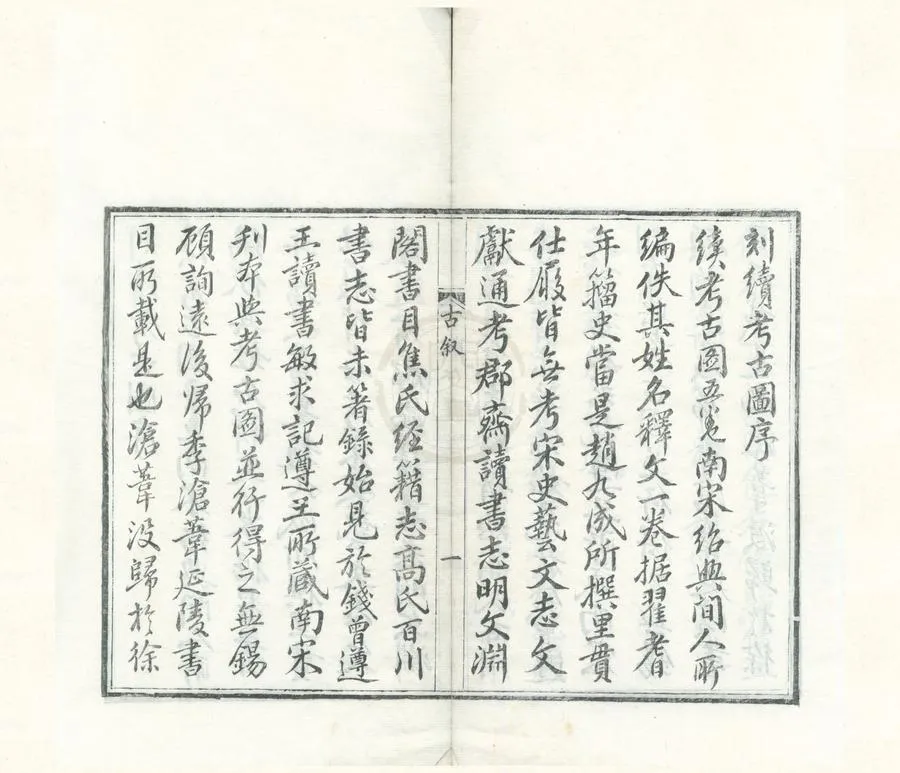 刻續考古圖序
續考古圖五卷南宋紹興間人所
編佚其姓名釋文一卷据翟耆
年籀史當是趙九成所撰里貫
仕履皆無考宋史藝文志文
獻通考郡齋讀書志明文淵
古叙
一
閣書目焦氏經籍志高氏百川
書志皆未著錄始見於錢曾遵
王讀書敏求記遵王所藏南宋
刋本與考古圖並行得之無錫
顧詢遠後歸季滄葦延陵書
目所載是也滄葦沒歸於徐